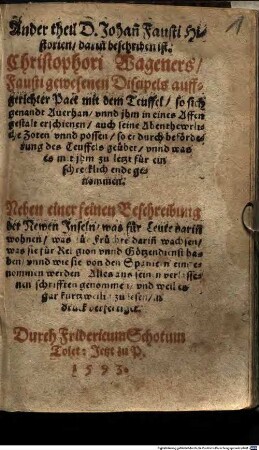 Ander theil D. Johañ Fausti Hi-
storien/ dariñ beschriben ist.
Christophori Wageners/
Fausti gewesenen Discipels auff-
gerichter Pact mit dem Teuffel/ so sich
genandt Auerhan/ vnnd jhm in eines Affen
gestalt erschienen/ auch seine Abentheurli-
che Zoten vnnd possen/ so er durch beförde-
rung des Teuffels geübet/ vnnd was
es mit jhm zu letzt für ein
schrecklich ende ge-
nommen.
Neben einer feinen Beschreibung
der Newen Inseln/ was für Leute dariñ
wohnen/ was für Früchte dariñ wachsen/
was sie für Religion vnnd Götzendienst ha-
ben/ vnnd wie sie von den Spaniern einge-
nommen werden Alles aus seinen verlasse-
nen schrifften genommen/ vnd weil es
gar kurtzweilig zu lesen/ in
druck verfertiget.
Durch Fridericum Schotum
Tolet: Jetzt zu P.
1593.